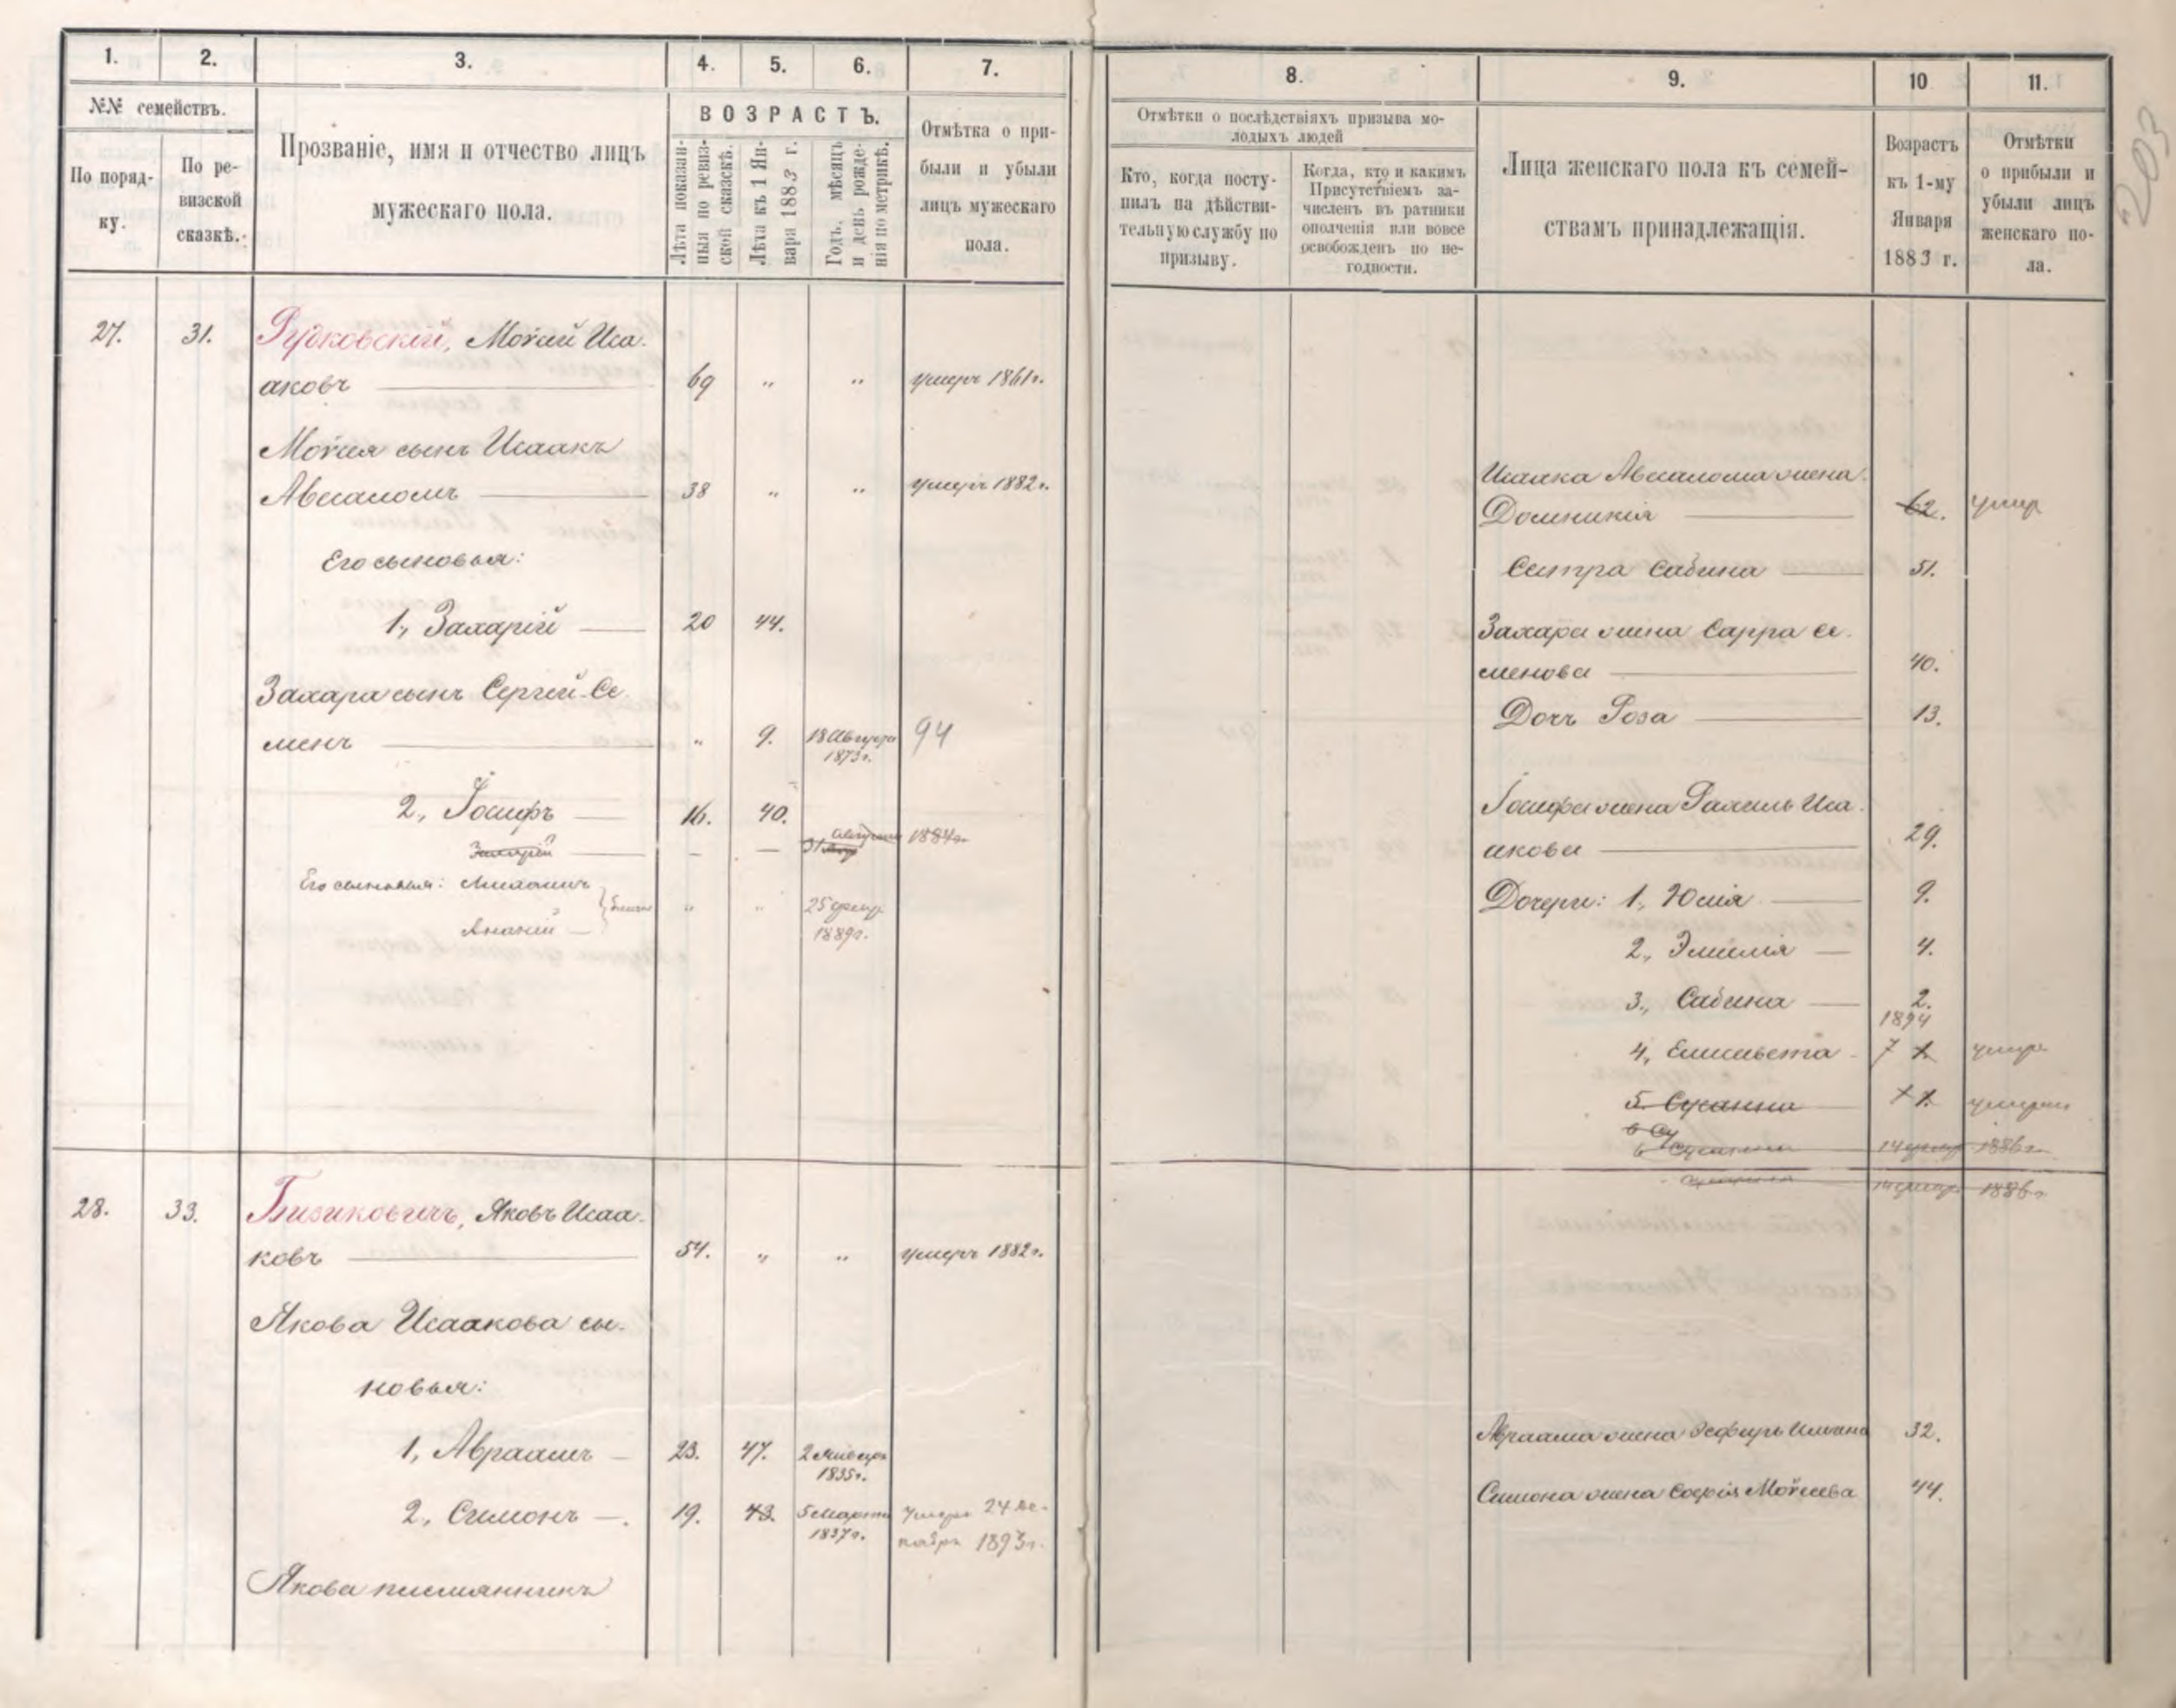 1.
2.
3.
4.
5.
6.
7.
№№ семействъ.
По поряд-
ку.
По ре-
визской
сказкѣ.
Прозваніе, имя и отчество лицъ
мужескаго пола.
ВОЗРАСТЪ.
Лѣта показан-
ныя по ревиз-
ской сказкѣ.
Лѣта къ 1 Ян-
варя 1883 г.
Годъ, мѣсяцъ
и день рожде-
нія по метрикѣ.
Отмѣтка о при-
были и убыли
лицъ мужескаго
пола.
27. 31. Рудковскій, Моѵсей Иса-
аковъ 69 " " умеръ 1861г.
Моѵсея сынъ Исаакъ
Авесаломъ 38 " " умеръ 1882г.
Его сыновья:
1., Захарій 20 44.
Захара сынъ Сергей-Се
менъ " 9. 18 Августа 1873г. 94
2., Іосифъ 16. 40.
Захарій — — 31 августа 1884г.
Его сыновья:
Ананій
" " 25 февр. 1889г.
28. 33. Бизиковичъ, Яковъ Исаа-
ковъ 54. " " умеръ 1882г.
Якова Исаакова сы-
новья:
1, Авраамъ 23. 47. 2 Января 1835г.
2, Симонъ 19. 43. 5 Марта 1837г. Умеръ 24 де-
кабря 1893г.
Якова племянникъ
8.
9.
10
11.
203
Отмѣтки о послѣдствіяхъ призыва мо-
лодыхъ людей
Кто, когда посту-
пилъ на дѣйстви-
тельную службу по
призыву.
Когда, кто и какимъ
Присутствіемъ за-
численъ въ ратники
ополченія или вовсе
освобожденъ по не-
годности.
Лица женскаго пола къ семей-
ствамъ принадлежащія.
Возрастъ
къ 1-му
Января
1883 г.
Отмѣтки
о прибыли и
убыли лицъ
женскаго по-
ла.
Исаака Авесалома жена
Доминикія 62. умер
Сестра Сабина 51.
Захара жена Сарра Се-
менова 40.
Дочь Роза 13.
Іосифа жена Рахиль Иса-
акова 29.
Дочери: 1, Юлія 9.
2, Эмилія 4.
3., Сабина 2.
1894
4, Елисавета 7 умер
5. Сусанна умерла
6 Су
6 Сусанна 14 февр 1886г.
14 февр 1886г
Авраама жена Эсфирь 32.
Симона жена Софія Моѵсеева 44.